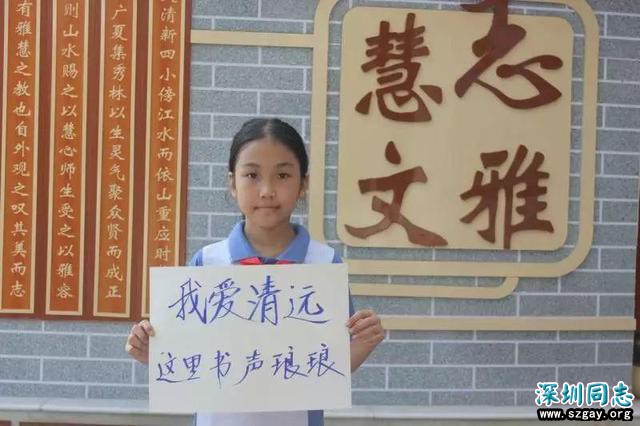 清新四小傍江水而依山重应时
广厦集秀林以生灵气聚众贤而成正
则山水赐之以慧心师生受之以雅容
有雅慧之教也自外观之叹其美而志
慧志
文雅
我爱清远
这里书声琅琅
深圳同志
www.szgay.com